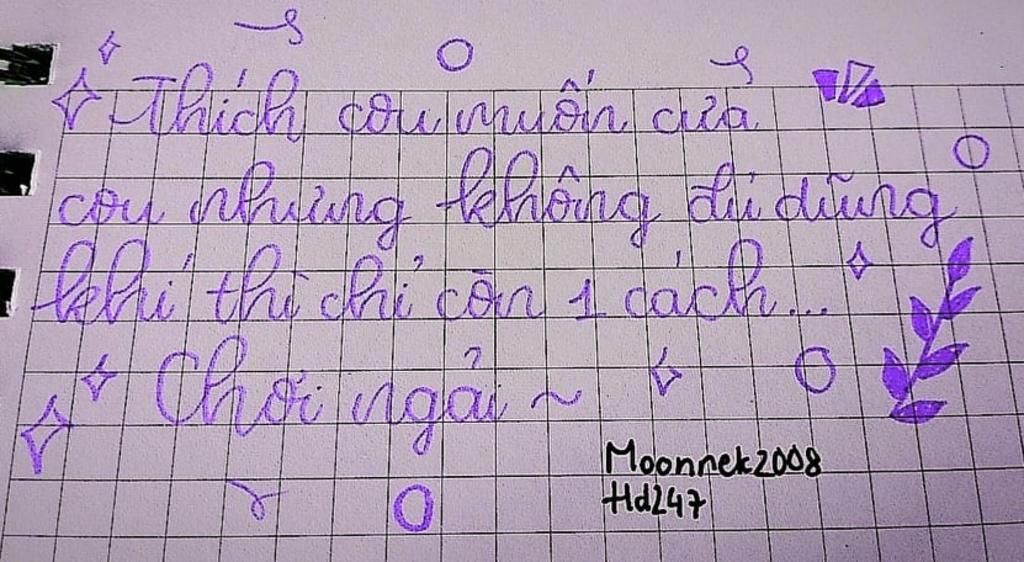 Thích cou muốn cửa
cou nhưng không đủ dũng
khí thì chỉ còn 1 cách...
Chơi ngải ~
Moonnek2008
Hd247